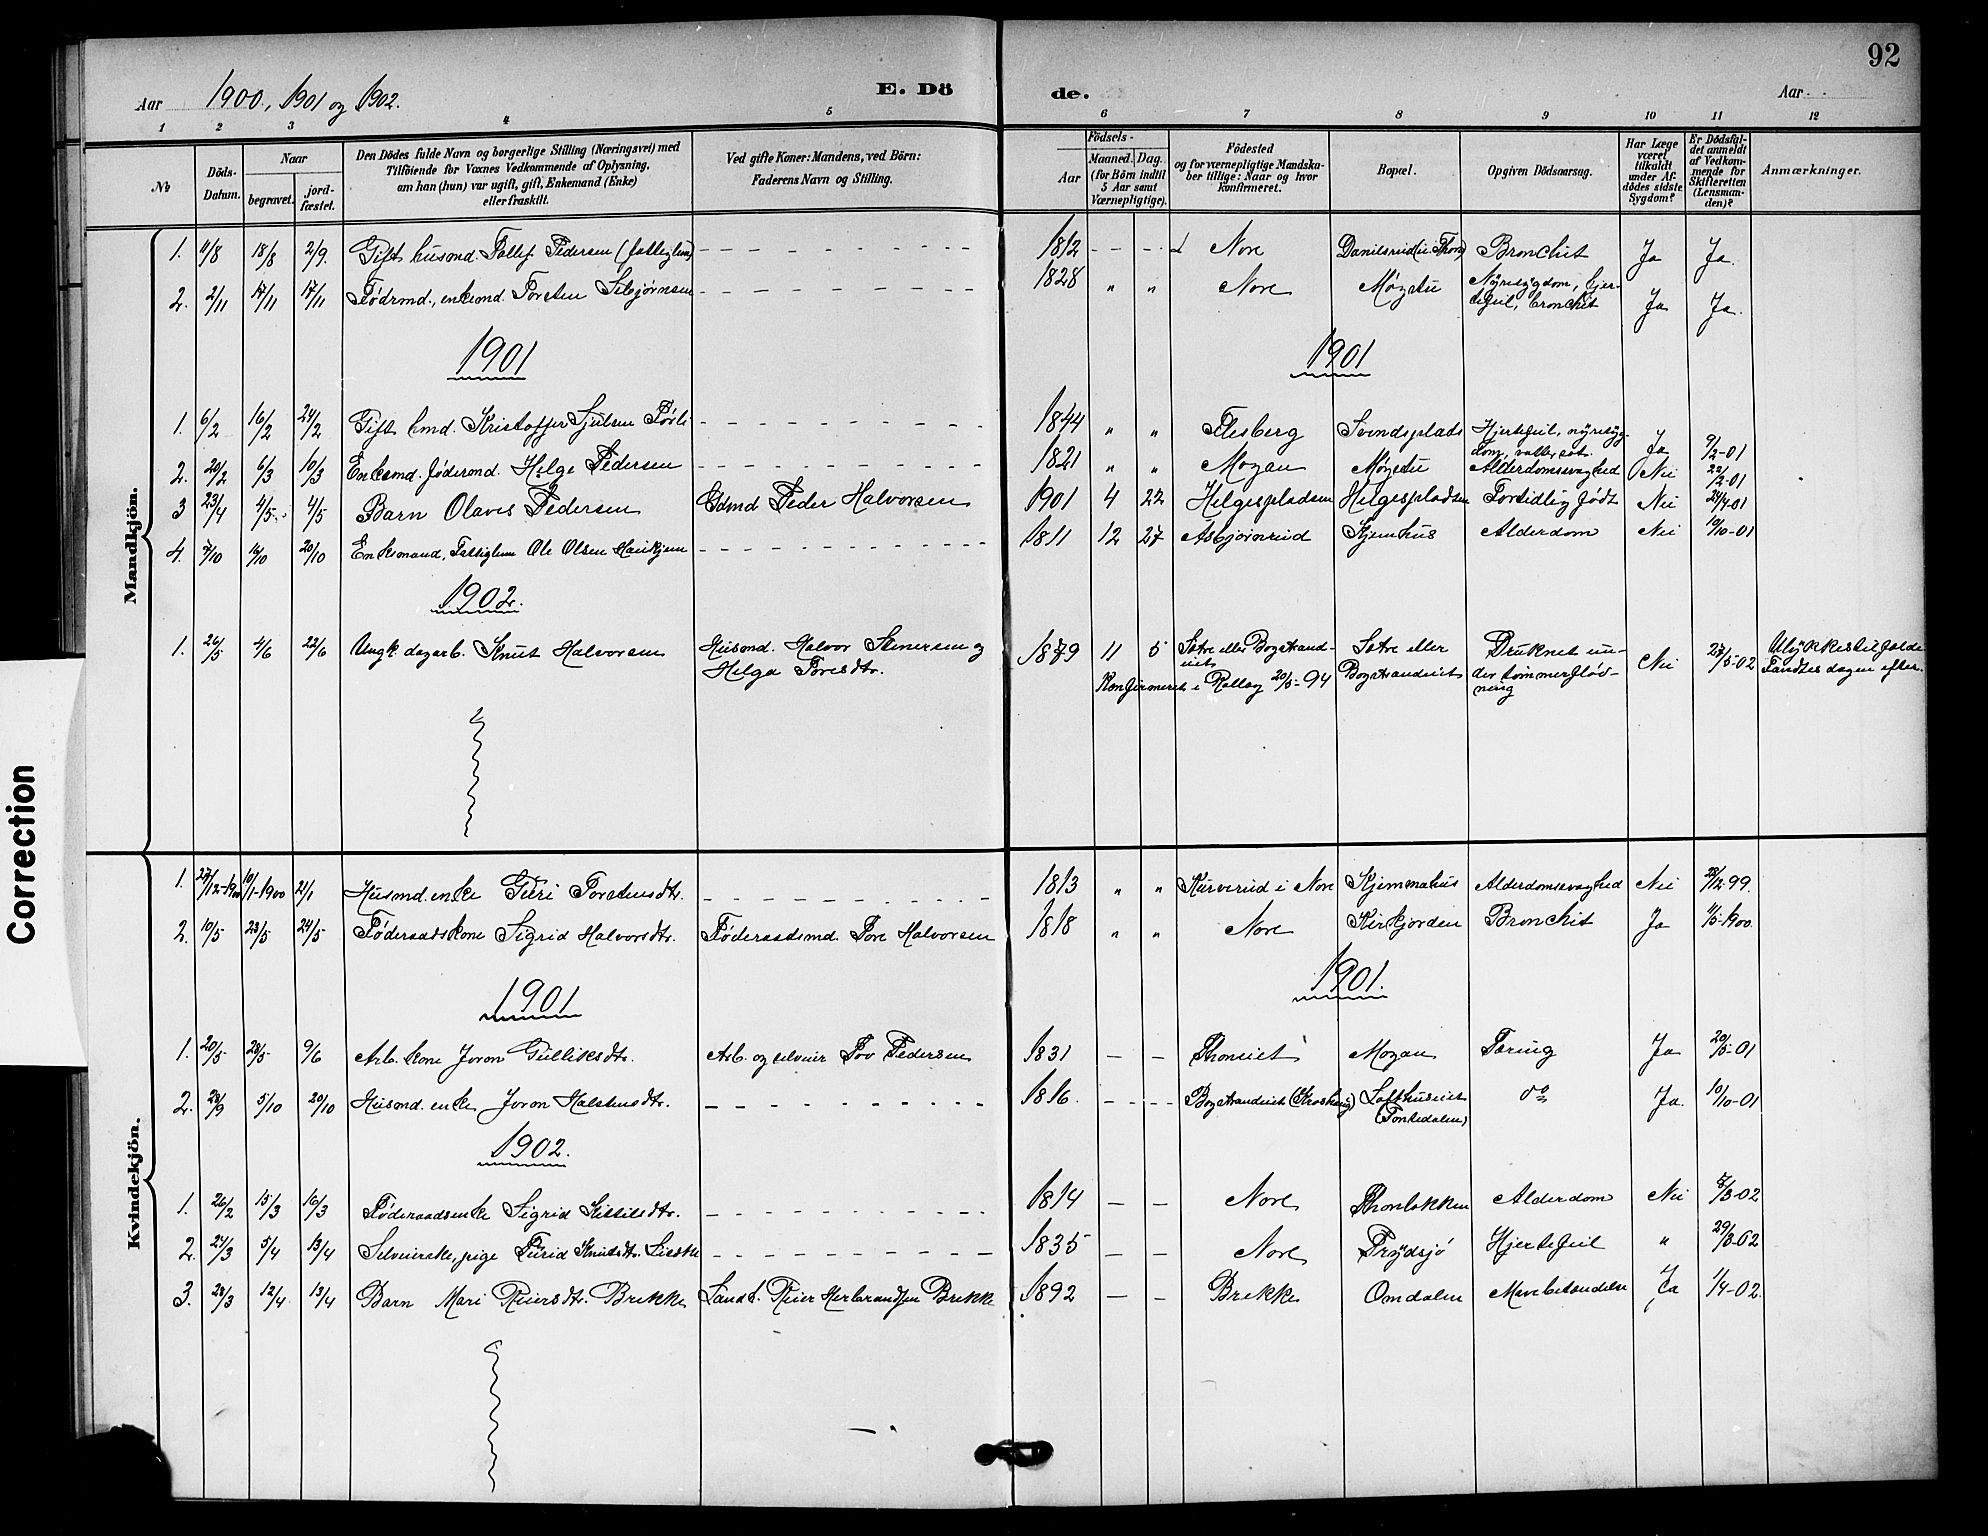 92
Aar 1900, 1901 og 1902. E. Dö de. Aar
1 2 3 4 5 6 7 8 9 10 11 12
№
Döds-Datum.
Naar
begravet.
jord-fæstet.
Den Dödes fulde Navn og borgerlige Stilling (Næringsvei) med
Tilföiende for Voxnes Vedkommende af Oplysning,
om han (hun) var ugift, gift, Enkemand (Enke)
eller fraskilt.
Ved gifte Koner: Mandens, ved Börn:
Faderens Navn og Stilling.
Födsels-
Aar
Maaned. Dag.
(for Börn indtil
5 Aar samt
Værnepligtige).
Födested
og for værnepligtige Mandska-
ber tillige: Naar og hvor
konfirmeret.
Bopæl.
Opgiven Dödsaarsag.
Har Læge
været
tilkaldt
under Af-
dödes sidste
Sygdom?
Er Dödsfal-
det anmeldt
af Vedkom-
mende for
Skifteretten
(Lensman-
den)?
Anmærkninger.
Mandkjön.
1. 11/8 18/8 2/9. Gift husmd. Tollef Pedersen (fattiglem) 1812 Nore Danilsrud (u. Thon) Bronchit Ja Ja.
2. 2/11 17/11 17/11 Födrmd., enkemd. Torsten Sebjørnsen 1828 " " Nore Møgstu Nyresygdom, hjer-
tefeil, bronchit Ja Ja.
1901 1901
1. 6/2 16/2 24/2 Gift hmd. Kristoffer Sjulsen 1844 " " Flesberg Svendsplads Hjertefeil, nyresyg-
dom, Ja 9/2-01
2. 20/2 6/3 10/3 Enkemd. födermd. Helge Pedersen 1821 " " Mogan Møgstu Alderdomssvaghed Nei 22/2-01
3 23/4 4/5 4/5 Barn Olaves Pedersen Gdmd Peder Halvorsen 1901 4 22 Helgespladsen Helgespladsen Fortidlig født Nei 24/4-01
4. 7/10 16/10 20/10 Enkemand, Fattiglem Ole Olsen 1811 12 27 Asbjørnrud Kjemhus Alderdom Nei 10/10-01
1902.
1. 26/5 4/6 22/6 Ungk. dagarb. Knut Halvorsen Husmd. Halvor Stenersen og
Helga Toresdtr. 1879 11 5 Sætre eller Bogstrand-
eiet Sætre eller
Bogstrandeiet Druknet un-
der tømmerflød-
ning Nei 27/5-02 Ulykkestilfælde
Fandtes dagen efter.
Konfirmeret i Rollag 20/5-94
Kvindekjön.
1. 27/12-1900 10/1-1900 21/1 Husmd. enke Guri Torstensdtr. 1813 " " Kurverud i Nore Kjemmehus Alderdomssvaghed Nei 28/12-99.
2. 10/5 23/5 24/5 Föderaadskone Sigrid Halvorsdtr. Föderaadsmd. Tore Halvorsen 1818 " " Nore Kirkjorden Bronchit Ja 11/5-1900.
1901 1901.
1. 20/5 28/5 9/6 Arb. kone Joron Gulliksdtr. Arb. og selveier Tov Pedersen 1831 Thoneiet Mogan Tæring Ja 20/5-01
2. 28/9 5/10 20/10 Husmd. enke Joron Halstensdtr. 1816. Bogstrandeiet Lofthuseiet
do Ja. 10/10-01
1902.
1. 26/2 15/3 16/3 Föderaadsenke Sigrid Kittilsdtr. 1814 Nore Thonløkken Alderdom Nei 8/3-02
2. 24/3 5/4 13/4 Selveierske, pige Turid Knutsdtr. 1835 Nore Frydsjø Hjertefeil " 29/3-02
3. 28/3 12/4 13/4 Barn Mari Reiersdtr. Brekke Landh. Reier Herbrandsen Brekke 1892 Brekke Omdalen Mavebetændelse Ja 1/4-02
Correction